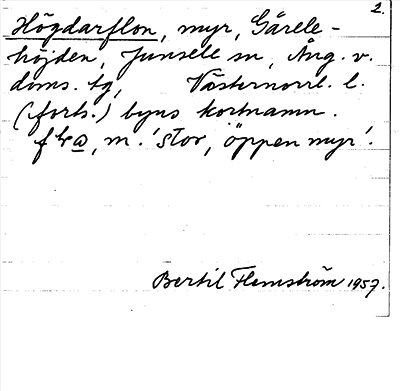 2.
Högdarflon, myr, Gårele-
höjden, Junsele sn, Ång. v.
doms. tg, Västernorrl. l.
(forts.) byns kortnamn.
m. 'stor, öppen myr'.
Bertil Flemström 1957.